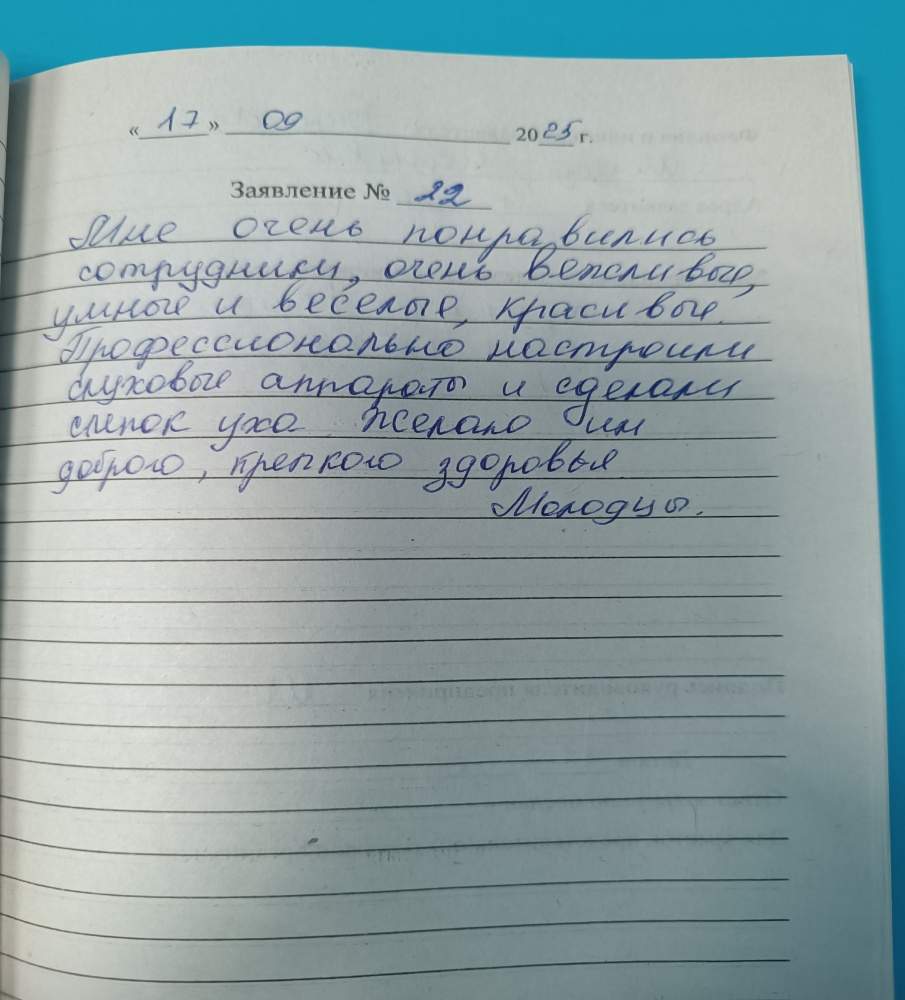 « 17 » 09 2025 г.
Заявление № 22
Мне очень понравились
сотрудники, очень вежливые,
умные и веселые, красивые.
Профессионально настроили
слуховые аппараты и сделали
слепок уха. Желаю им
доброго, крепкого здоровья
Молодцы.